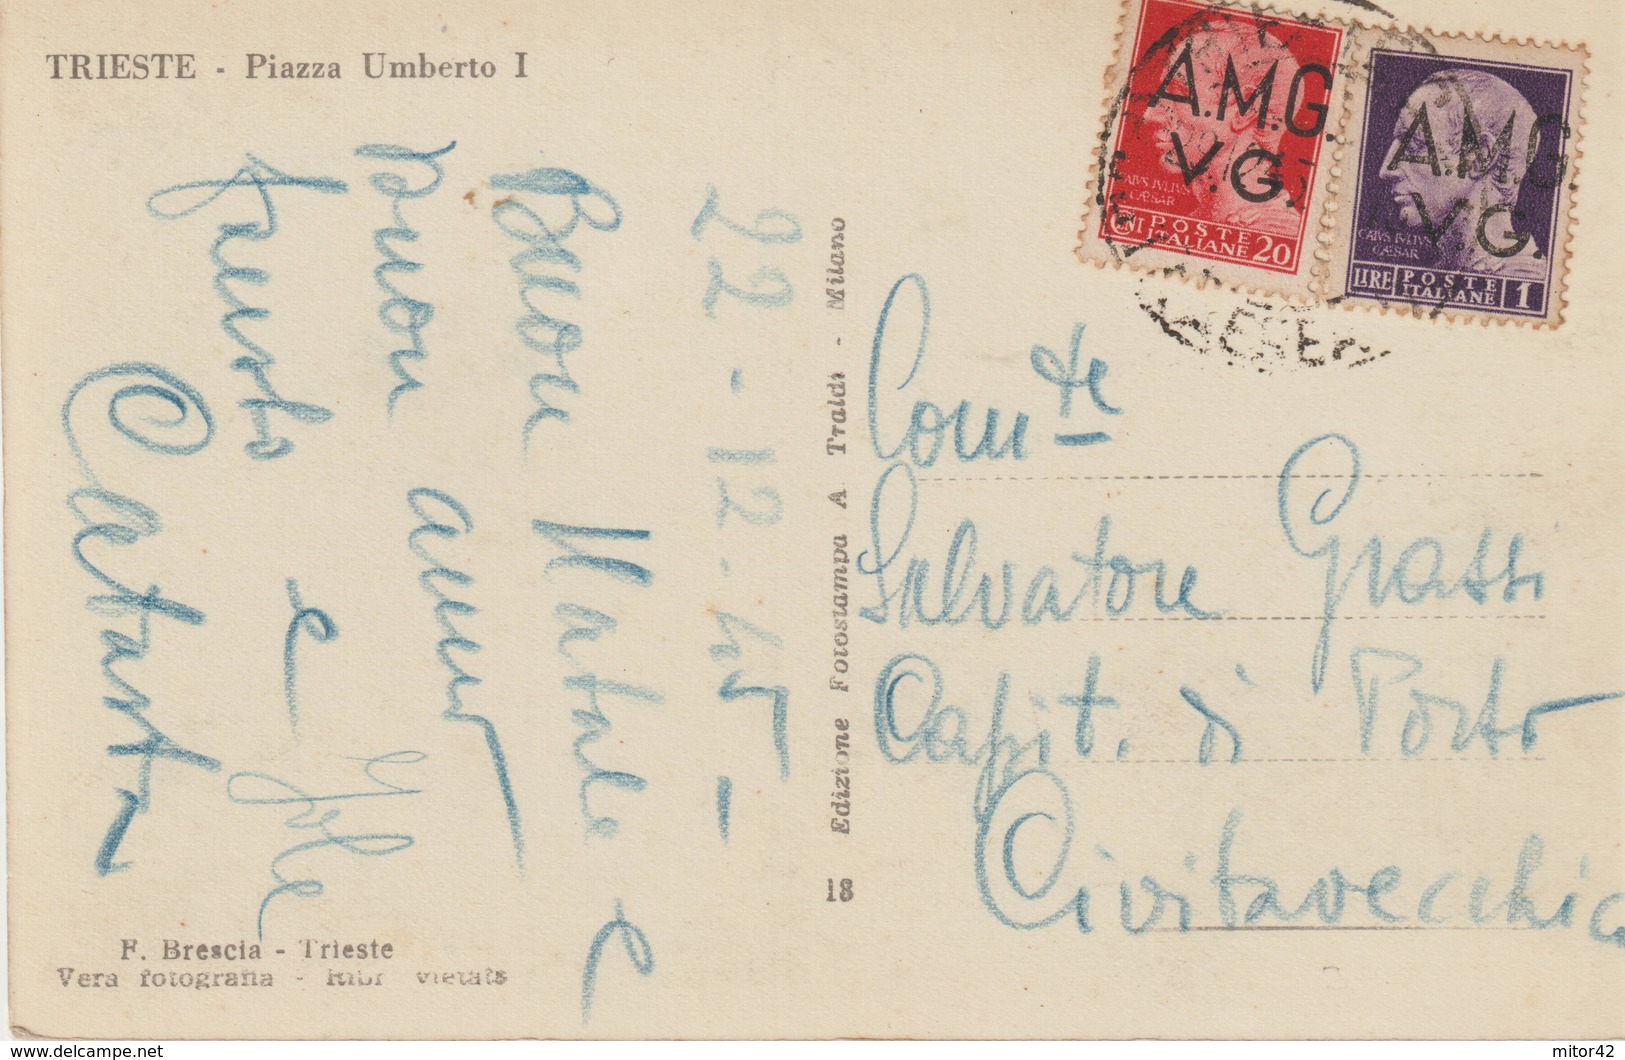 TRIESTE - Piazza Umberto I
A.M.G.
V.G.
CAIVS IVLIVS
CÆSAR
CNI POSTE
ITALIANE 20
A.M.G.
V.G.
CAIVS IVLIVS
CÆSAR
LIRE POSTE
ITALIANE 1
22-12-45-
Buon Natale e
buon anno
e Jole
Edizione Fotostampa A Traldi - Milano
18
Com.te
Salvatore Grassi
Capit. di Porto
Civitavecchia
F. Brescia - Trieste
Vera fotografia - Ripr vietata
https://www.delcampe.net
mitor42